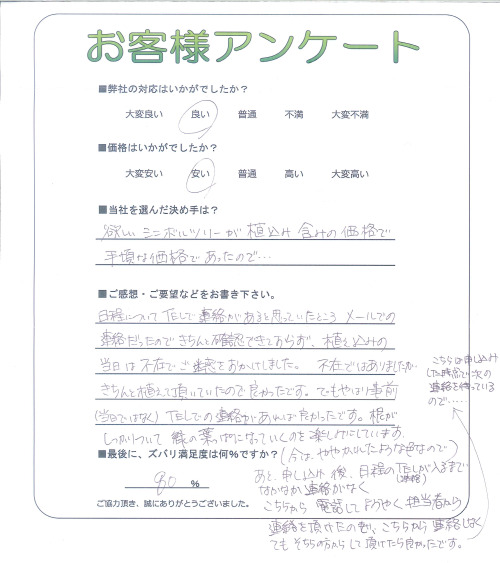 お客様アンケート
■弊社の対応はいかがでしたか？
大変良い 良い 普通 不満 大変不満
■価格はいかがでしたか？
大変安い 安い 普通 高い 大変高い
■当社を選んだ決め手は？
欲しい シンボルツリーが 植込み 含みの価格で
手頃な価格であったので…
■ご感想・ご要望などをお書き下さい。
日程について TELで連絡があると思っていたところ メールでの
連絡だったのできちんと確認できておらず、植え込みの
当日は不在でご迷惑をおかけしました。 不在ではありましたが
きちんと植えて頂いていたので良かったです。でもやはり事前
(当日ではなく) TELでの連絡があれば良かったです。根が
しっかりついて 緑の葉っぱになっていくのを楽しみにしています
(今は、やや かれたような色なので)
こちらは申し込み
した時点で次の
連絡を待っている
ので…
■最後に、ズバリ満足度は何％ですか？
80 ％
あと、申し込み後、日程のTELが入るまで
(連絡)
なかなか連絡がなく
こちらから 電話して ようやく 担当者から
連絡を頂けたのも、こちらから 連絡しなく
ても そちらの方からして頂けたら良かったです。
ご協力頂き、誠にありがとうございました。